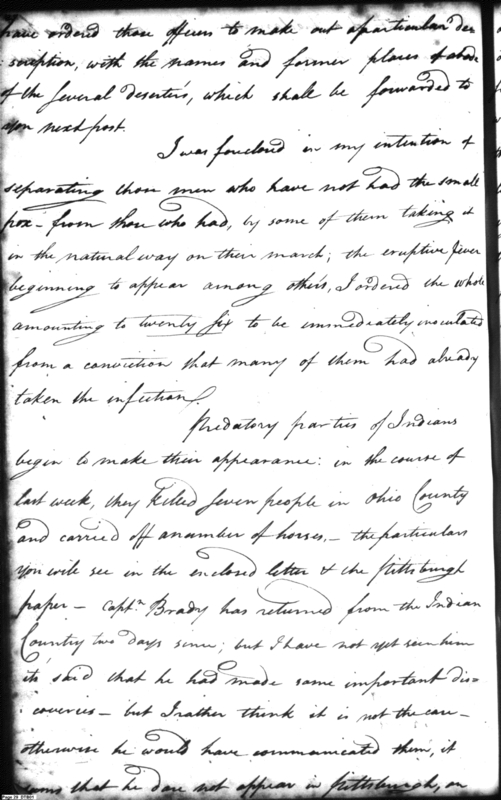 have ordered those officers to make out a particular de-
scription, with the names and former places of abode
of the several deserters, which shall be forwarded to
you next post.
I was foreclosd in my intention of
separating those men who have not had the small
pox – from those who had, by some of them taking it
in the natural way on their march; the eruptive fever
beginning to appear among others, I ordered the whole
amounting to twenty six to be immediately inoculated
from a conviction that many of them had already
taken the infection.
Predatory parties of Indians
begin to make their appearance: in the course of
last week, they killed seven people in Ohio County
and carried off a number of horses, – the particulars
you will see in the enclosed letter & the Pittsburgh
paper – Captn Brady has returned from the Indian
Country two days since; but I have not yet seen him
its said that he had made some important dis=
coveries – but I rather think it is not the case –
otherwise he would have communicated them, it
seems that he dare not appear in Pittsburgh, on
Page 29